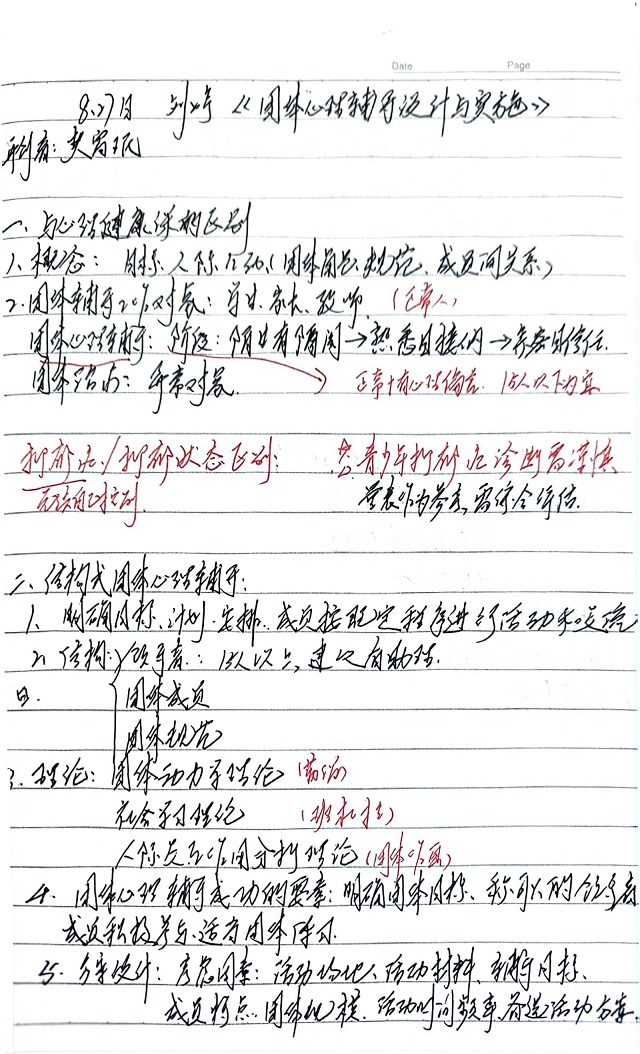 Date Page
8.27日 《团体心理辅导设计与实施》
樊富珉
一、与心理健康课的区别
1、概念：目标、人际互动（团体角色、规范、成员间关系）
2.团体辅导 对象：学生、家长、教师.（正常人）
团体心理辅导：阶段：陌生有隔阂→熟悉且接纳→ 且信任.
团体治疗：异常对象. 正常+有心理偏差. 15人以下为宜
抑郁症/抑郁状态区别： ☆青少年抑郁症诊断需谨慎
量表作为参考,需综合评估.
二、结构式团体心理辅导：
1、明确目标、计划.安排.成员按既定程序进行活动和交流
2、结构： 领导者：15人以上,建议有助理.
团体成员
团体规范
3.理论：团体动力学理论（勒温）
社会学习理论（班杜拉）
人际交互作用分析理论
4.团体心理辅导成功的要素：明确团体目标、称职的领导者
成员积极参与、适當团体练习.
5.方案设计：考虑因素：活动场地、活动材料、辅导目标、
成员特点.团体规模、活动时间频率.备选活动方案.